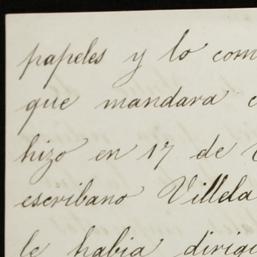 papeles y lo com
que mandara
hizo en 17 de
escribano Villela
le habia dirig